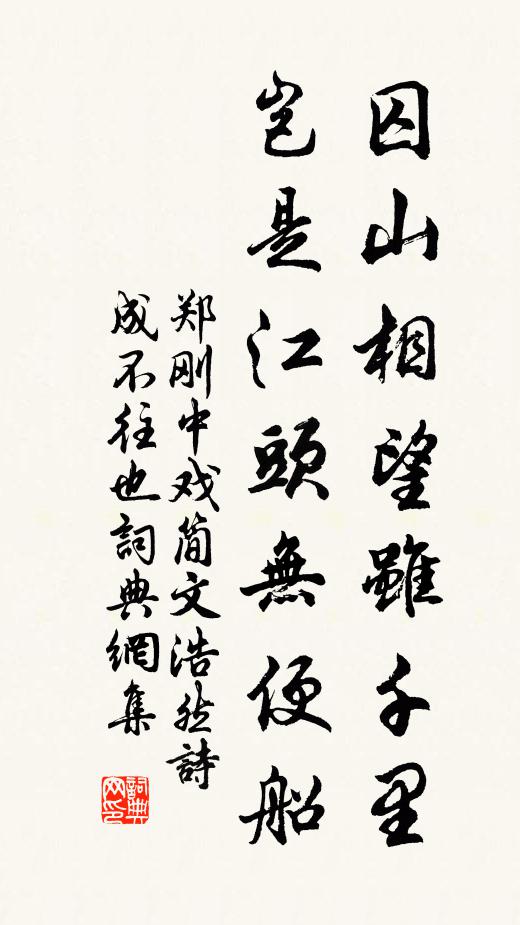 囚山相望雖千里
豈是江頭無便船
郑刚中戏简文浩然詩
成不往也詞典網集
詞典網印